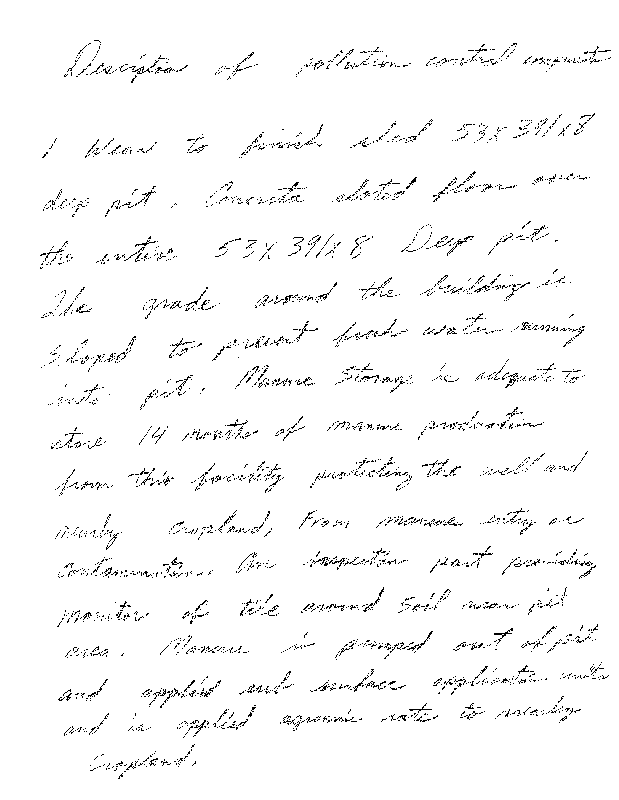 Description of pollution control components
1 Wean to finish shed 53x391x8
deep pit. Concrete slated floor over
the entire 53x391x8 Deep pit.
The grade around the building is
sloped to prevent fresh water running
into pit. Manure Storage is adequate to
store 14 months of manure production
from this facility protecting the well and
nearby cropland, From manure entry or
contamination. An inspection port providing
monitor of tile around soil near pit
area. Manure is pumped out of pit
and applied and surface applicator units
and is applied agronomic rate to nearby
Cropland.